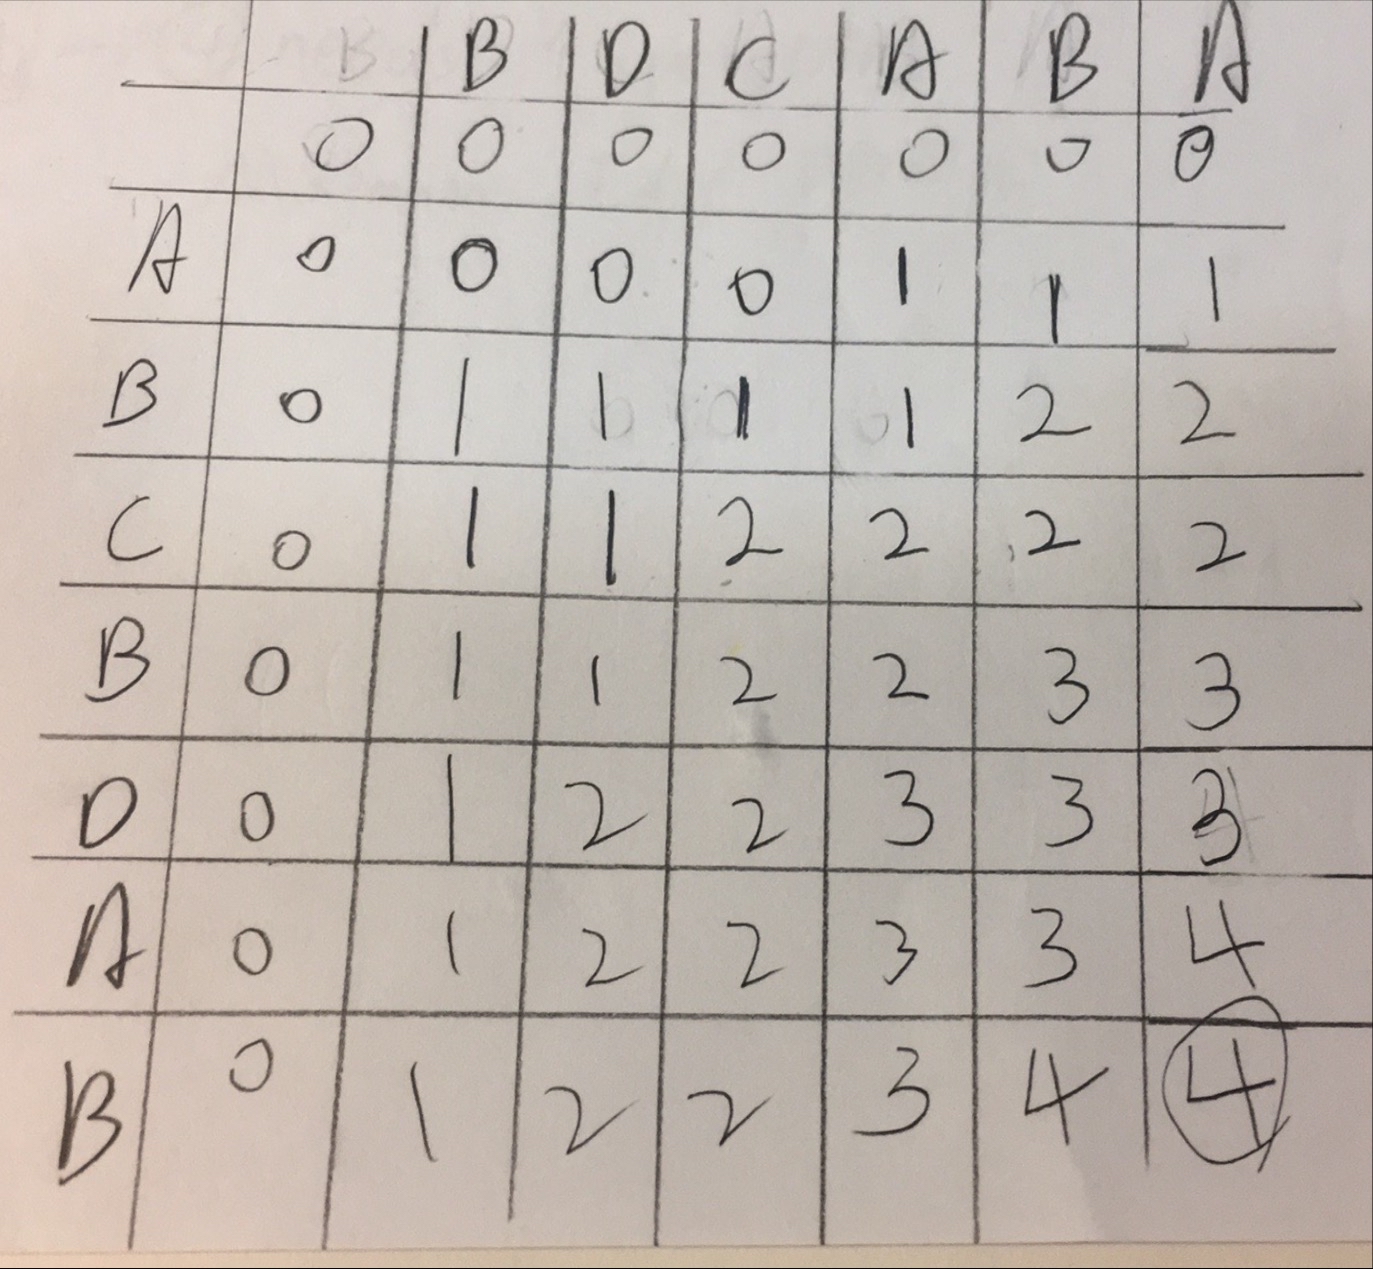 B D C A B A
0 0 0 0 0 0 0
A 0 0 0 0 1 1 1
B 0 1 1 1 1 2 2
C 0 1 1 2 2 2 2
B 0 1 1 2 2 3 3
D 0 1 2 2 3 3 3
A 0 1 2 2 3 3 4
B 0 1 2 2 3 4 4